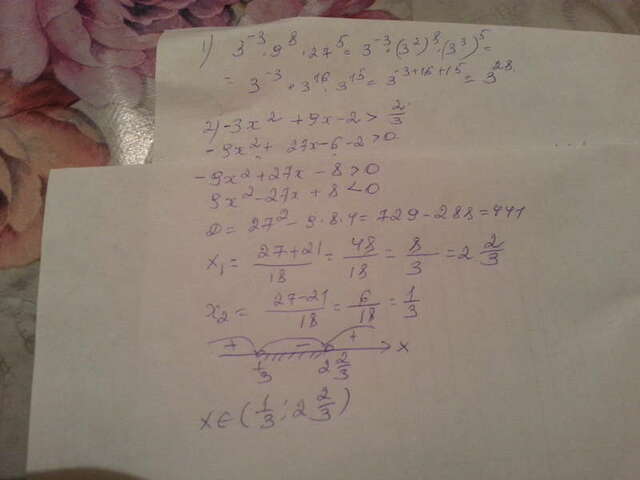 1) 3⁻³ · 9⁸ · 27⁵ = 3⁻³ · (3²)⁸ · (3³)⁵ =
= 3⁻³ · 3¹⁶ · 3¹⁵ = 3⁻³⁺¹⁶⁺¹⁵ = 3²⁸
2) -3x² + 9x - 2 > 2/3
-9x² + 27x - 6 - 2 > 0
-9x² + 27x - 8 > 0
9x² - 27x + 8 < 0
D = 27² - 9·8·4 = 729 - 288 = 441
x₁ = (27+21)/18 = 48/18 = 8/3 = 2 2/3
x₂ = (27-21)/18 = 6/18 = 1/3
+ - + x
1/3 2 2/3
x ∈ (1/3; 2 2/3)